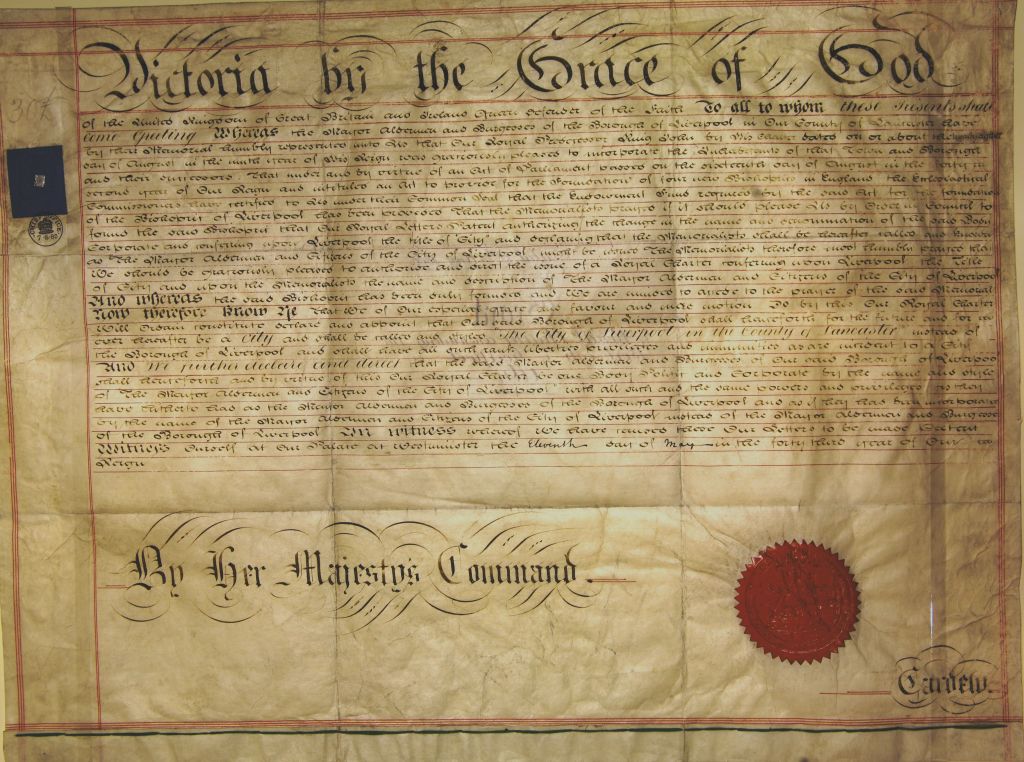 Victoria by the Grace of God
of the United Kingdom of Great Britain and Ireland Queen Defender of the Faith To all to whom these Presents shall
come Greeting Whereas the Mayor Aldermen and Burgesses of the Borough of Liverpool in Our County of Lancaster have
by their Memorial humbly represented unto Us that Our Royal Predecessor King John by His Charter dated on or about the
day of August in the ninth year of His Reign was graciously pleased to incorporate the Inhabitants of that Town and Borough
and their successors That under and by virtue of an Act of Parliament passed on the sixteenth day of August in the forty
second year of Our Reign and intituled an Act to provide for the Foundation of four new Bishoprics in England the Ecclesiastical
Commissioners have certified to Us under their Common Seal that the Endowment Fund required by the said Act for the foundation
of the Bishopric of Liverpool has been provided That the Memorialists prayed if it should please Us by Order in Council to
found the said Bishopric that Our Royal Letters Patent authorizing the change in the name and denomination of the said Body
Corporate and conferring upon Liverpool the title of "City" and declaring that the Memorialists shall be hereafter called and known
as The Mayor Aldermen and Citizens of the City of Liverpool might be issued The Memorialists therefore most humbly prayed that
We should be graciously pleased to authorize and direct the issue of a Royal Charter conferring upon Liverpool the Title
of City and upon the Memorialists the name and description of The Mayor Aldermen and Citizens of the City of Liverpool
And whereas the said Bishopric has been duly founded and We are minded to accede to the prayer of the said Memorial
Now therefore Know Ye That We of Our especial grace and favour and mere motion Do by this Our Royal Charter
Will Ordain constitute declare and appoint that Our said Borough of Liverpool shall henceforth for the future and for
ever hereafter be a City and shall be called and styled The City of Liverpool in the County of Lancaster instead of
the Borough of Liverpool and shall have all such rank liberties privileges and immunities as are incident to a City
And We further declare and direct that the said Mayor Aldermen and Burgesses of Our said Borough of Liverpool
shall henceforth and by virtue of this Our Royal Charter be one Body Politic and Corporate by the name and style
of The Mayor Aldermen and Citizens of the City of Liverpool with all such and the same powers and privileges as they
have hitherto had as the Mayor Aldermen and Burgesses of the Borough of Liverpool and as if they had been incorporated
by the name of the Mayor Aldermen and Citizens of the City of Liverpool instead of the Mayor Aldermen and Burgesses
of the Borough of Liverpool In witness whereof We have caused these Our Letters to be made Patent
Witness Ourself at Our Palace at Westminster the Eleventh day of May in the forty third year of Our
Reign
By Her Majesty's Command.
Cardew.